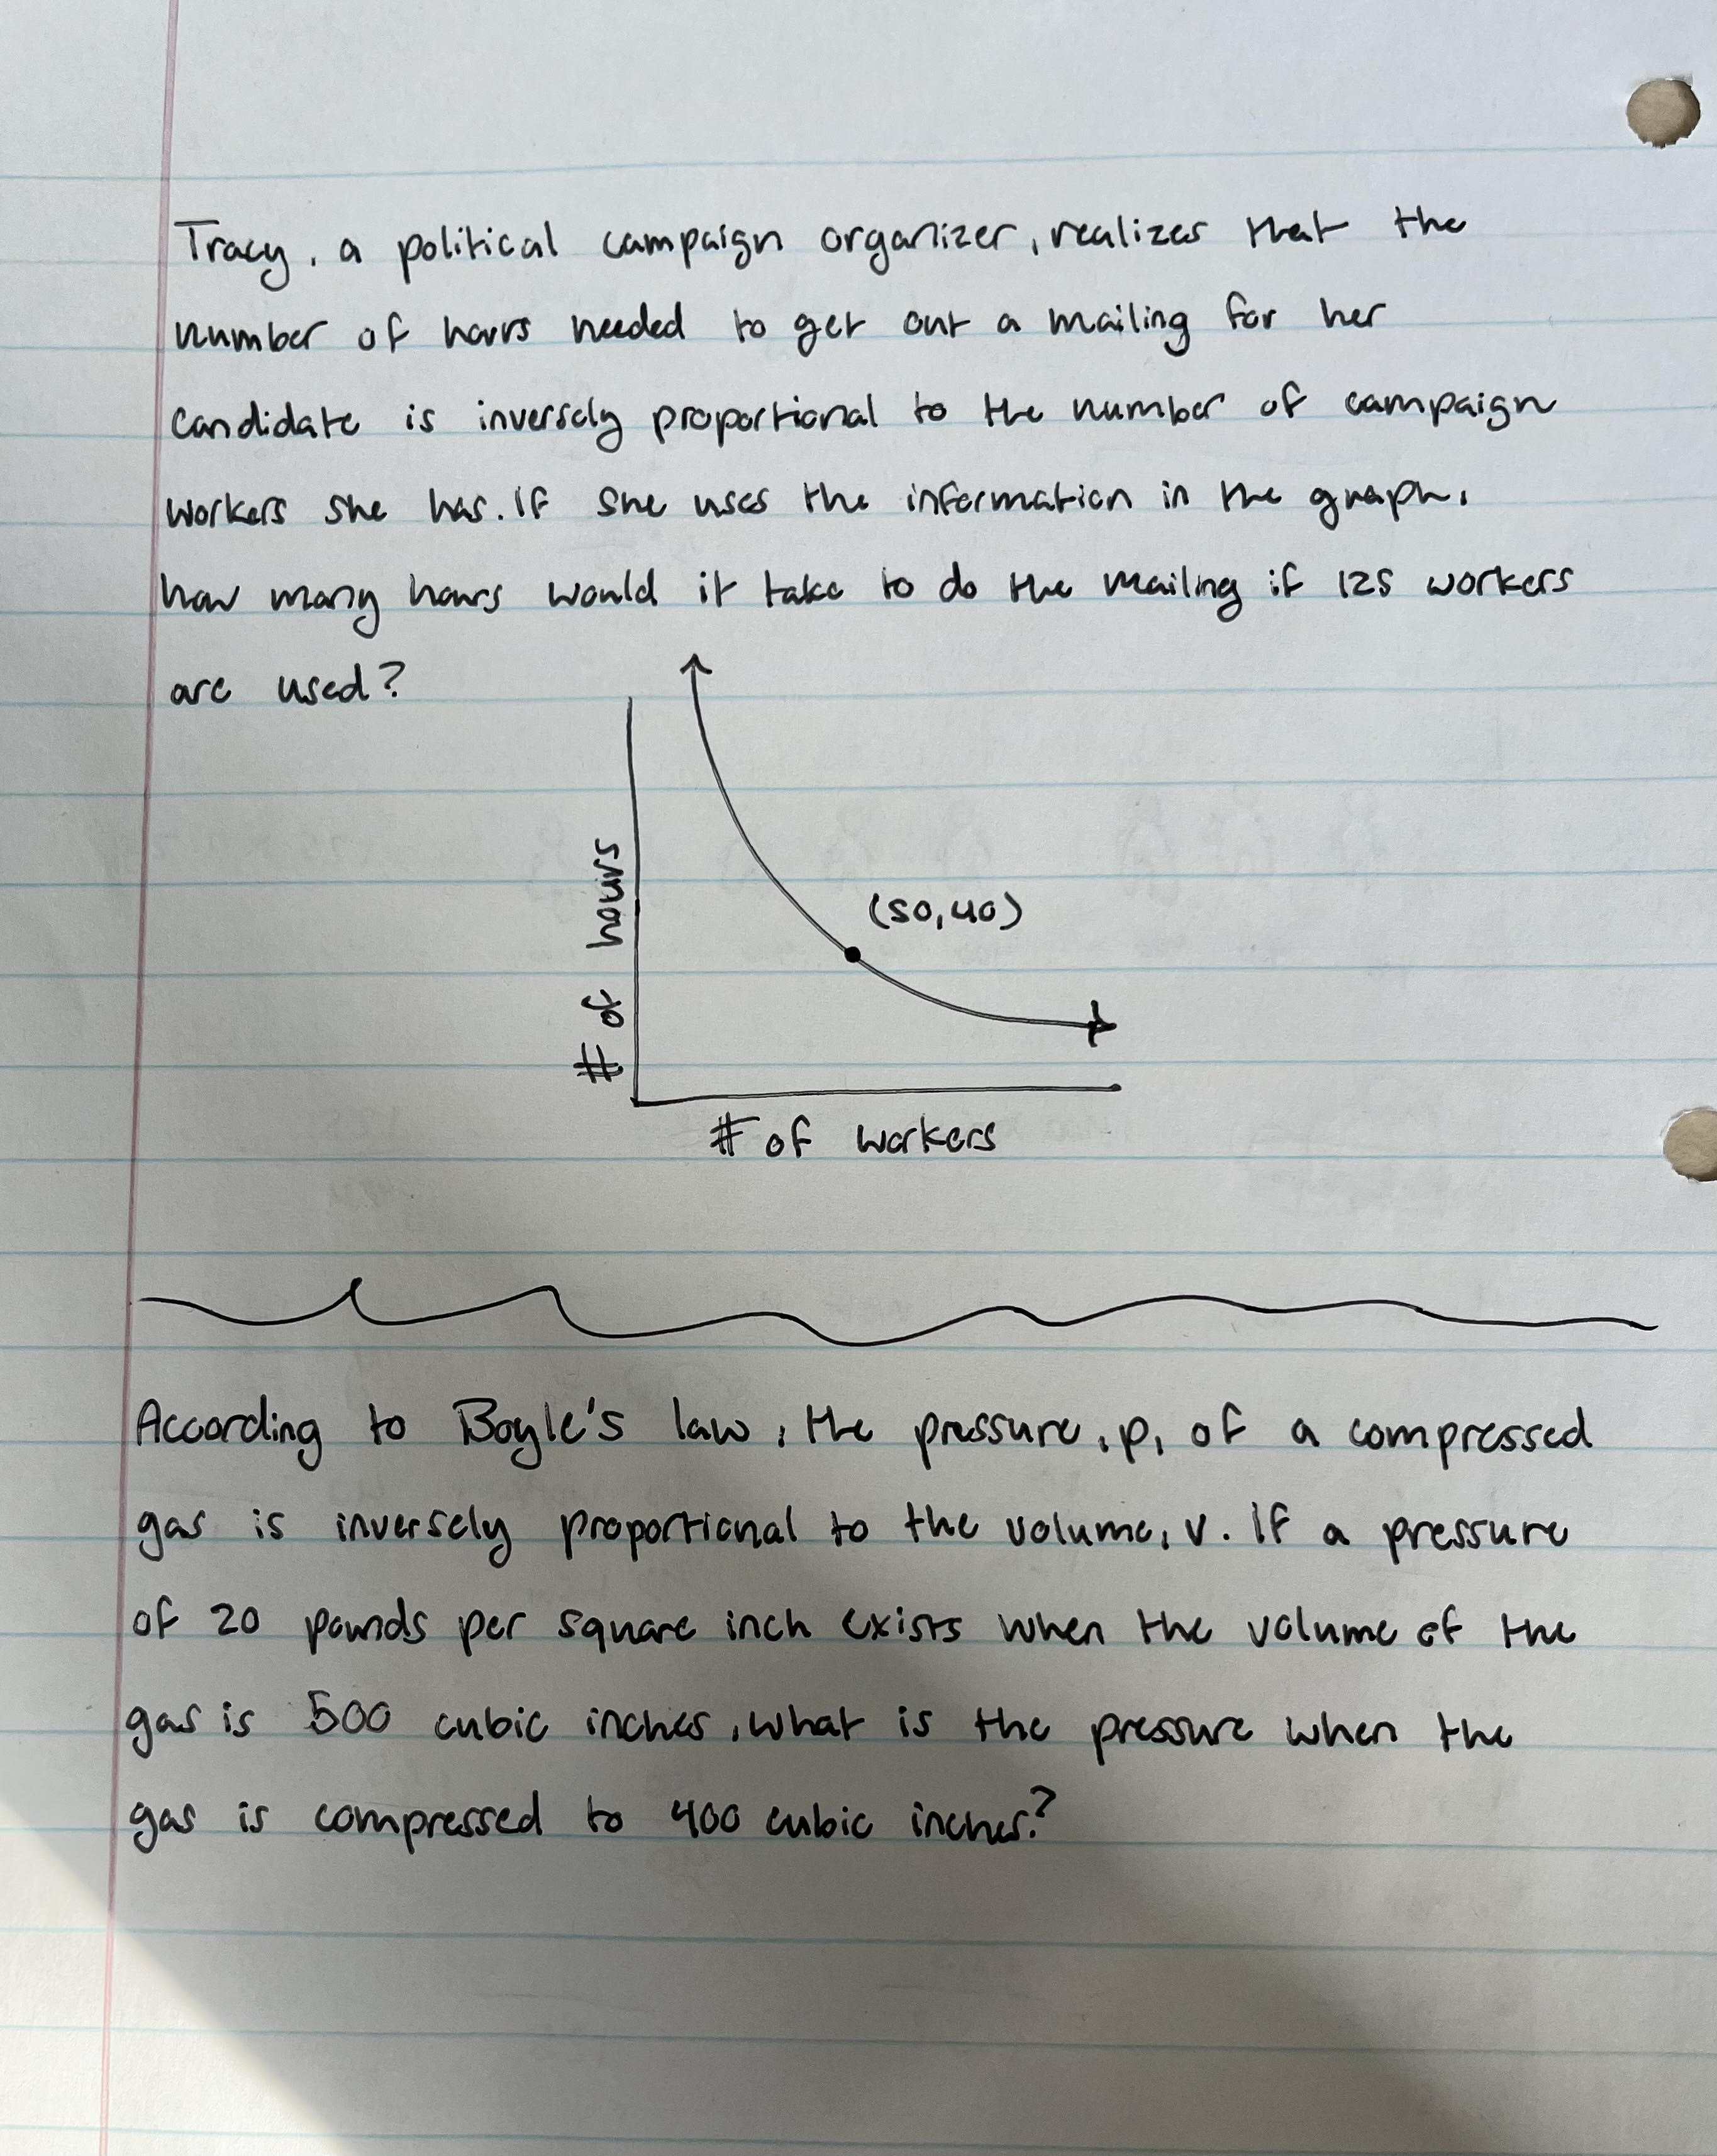 Tracy, a political campaign organizer, realizes that the
number of hours needed to get out a mailing for her
candidate is inversely proportional to the number of campaign
workers she has. If she uses the information in the graph,
how many hours would it take to do the mailing if 125 workers
are used?
# of hours
(50,40)
# of workers
According to Boyle's law, the pressure, p, of a compressed
gas is inversely proportional to the volume, v. If a pressure
of 20 pounds per square inch exists when the volume of the
gas is 500 cubic inches, what is the pressure when the
gas is compressed to 400 cubic inches?